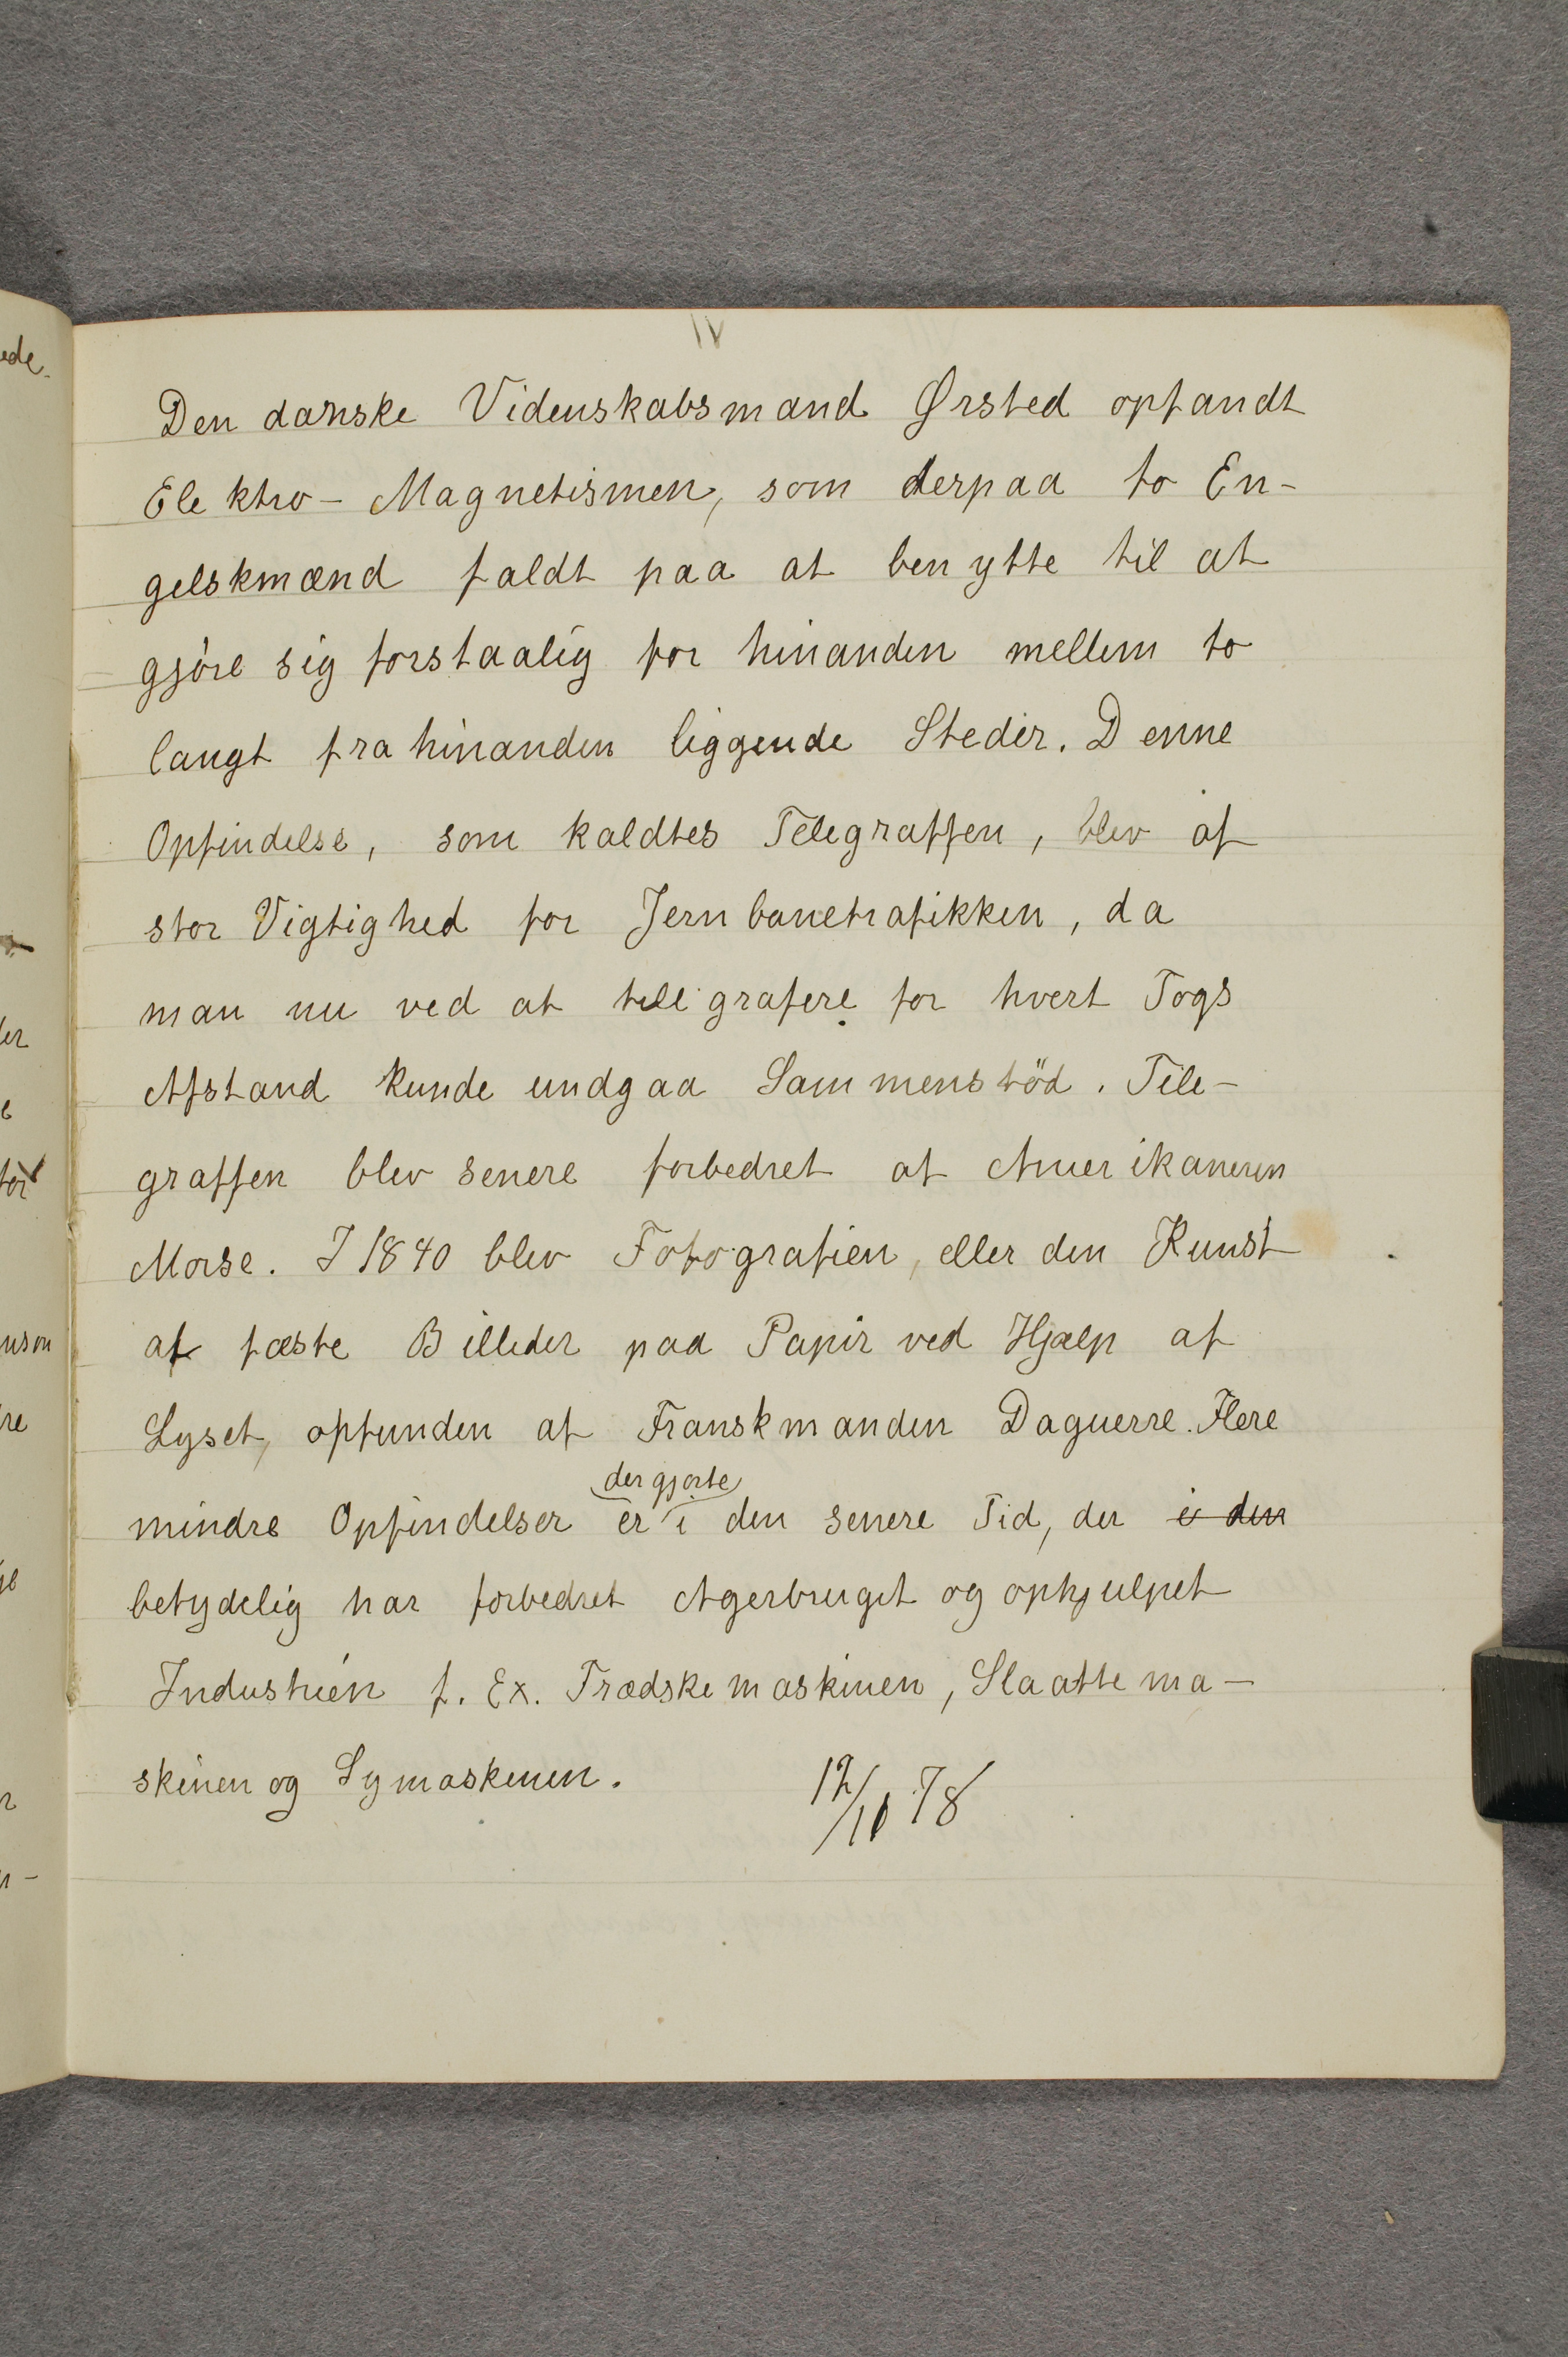 IV
Den danske Videnskabsmand Ørsted opfandt
Elektro-Magnetismen, som derpaa to En-
gelskmænd faldt paa at benytte til at
gjöre sig forstaalig for hinanden mellem to
langt fra hinanden liggende Steder. Denne
Opfindelse, som kaldtes Telegraffen, blev af
stor Vigtighed for Jernbanetrafikken, da
man nu ved at telegrafere for hvert Togs
Afstand kunde undgaa Sammenstöd. Tele-
graffen blev senere forbedret af Amerikaneren
Morse. I 1840 blev Fotografien, eller den Kunst
at fæste Billeder paa Papir ved Hjælp af
Lyset, opfunden af Franskmanden Daguerre. Flere
der gjorte
mindre Opfindelser er i den senere Tid, der i den
betydelig har forbedret Agerbruget og ophjulpet
Industrien f. Ex. Trædskemaskinen, Slaattema-
skinen og Symaskinen.
12/10 78